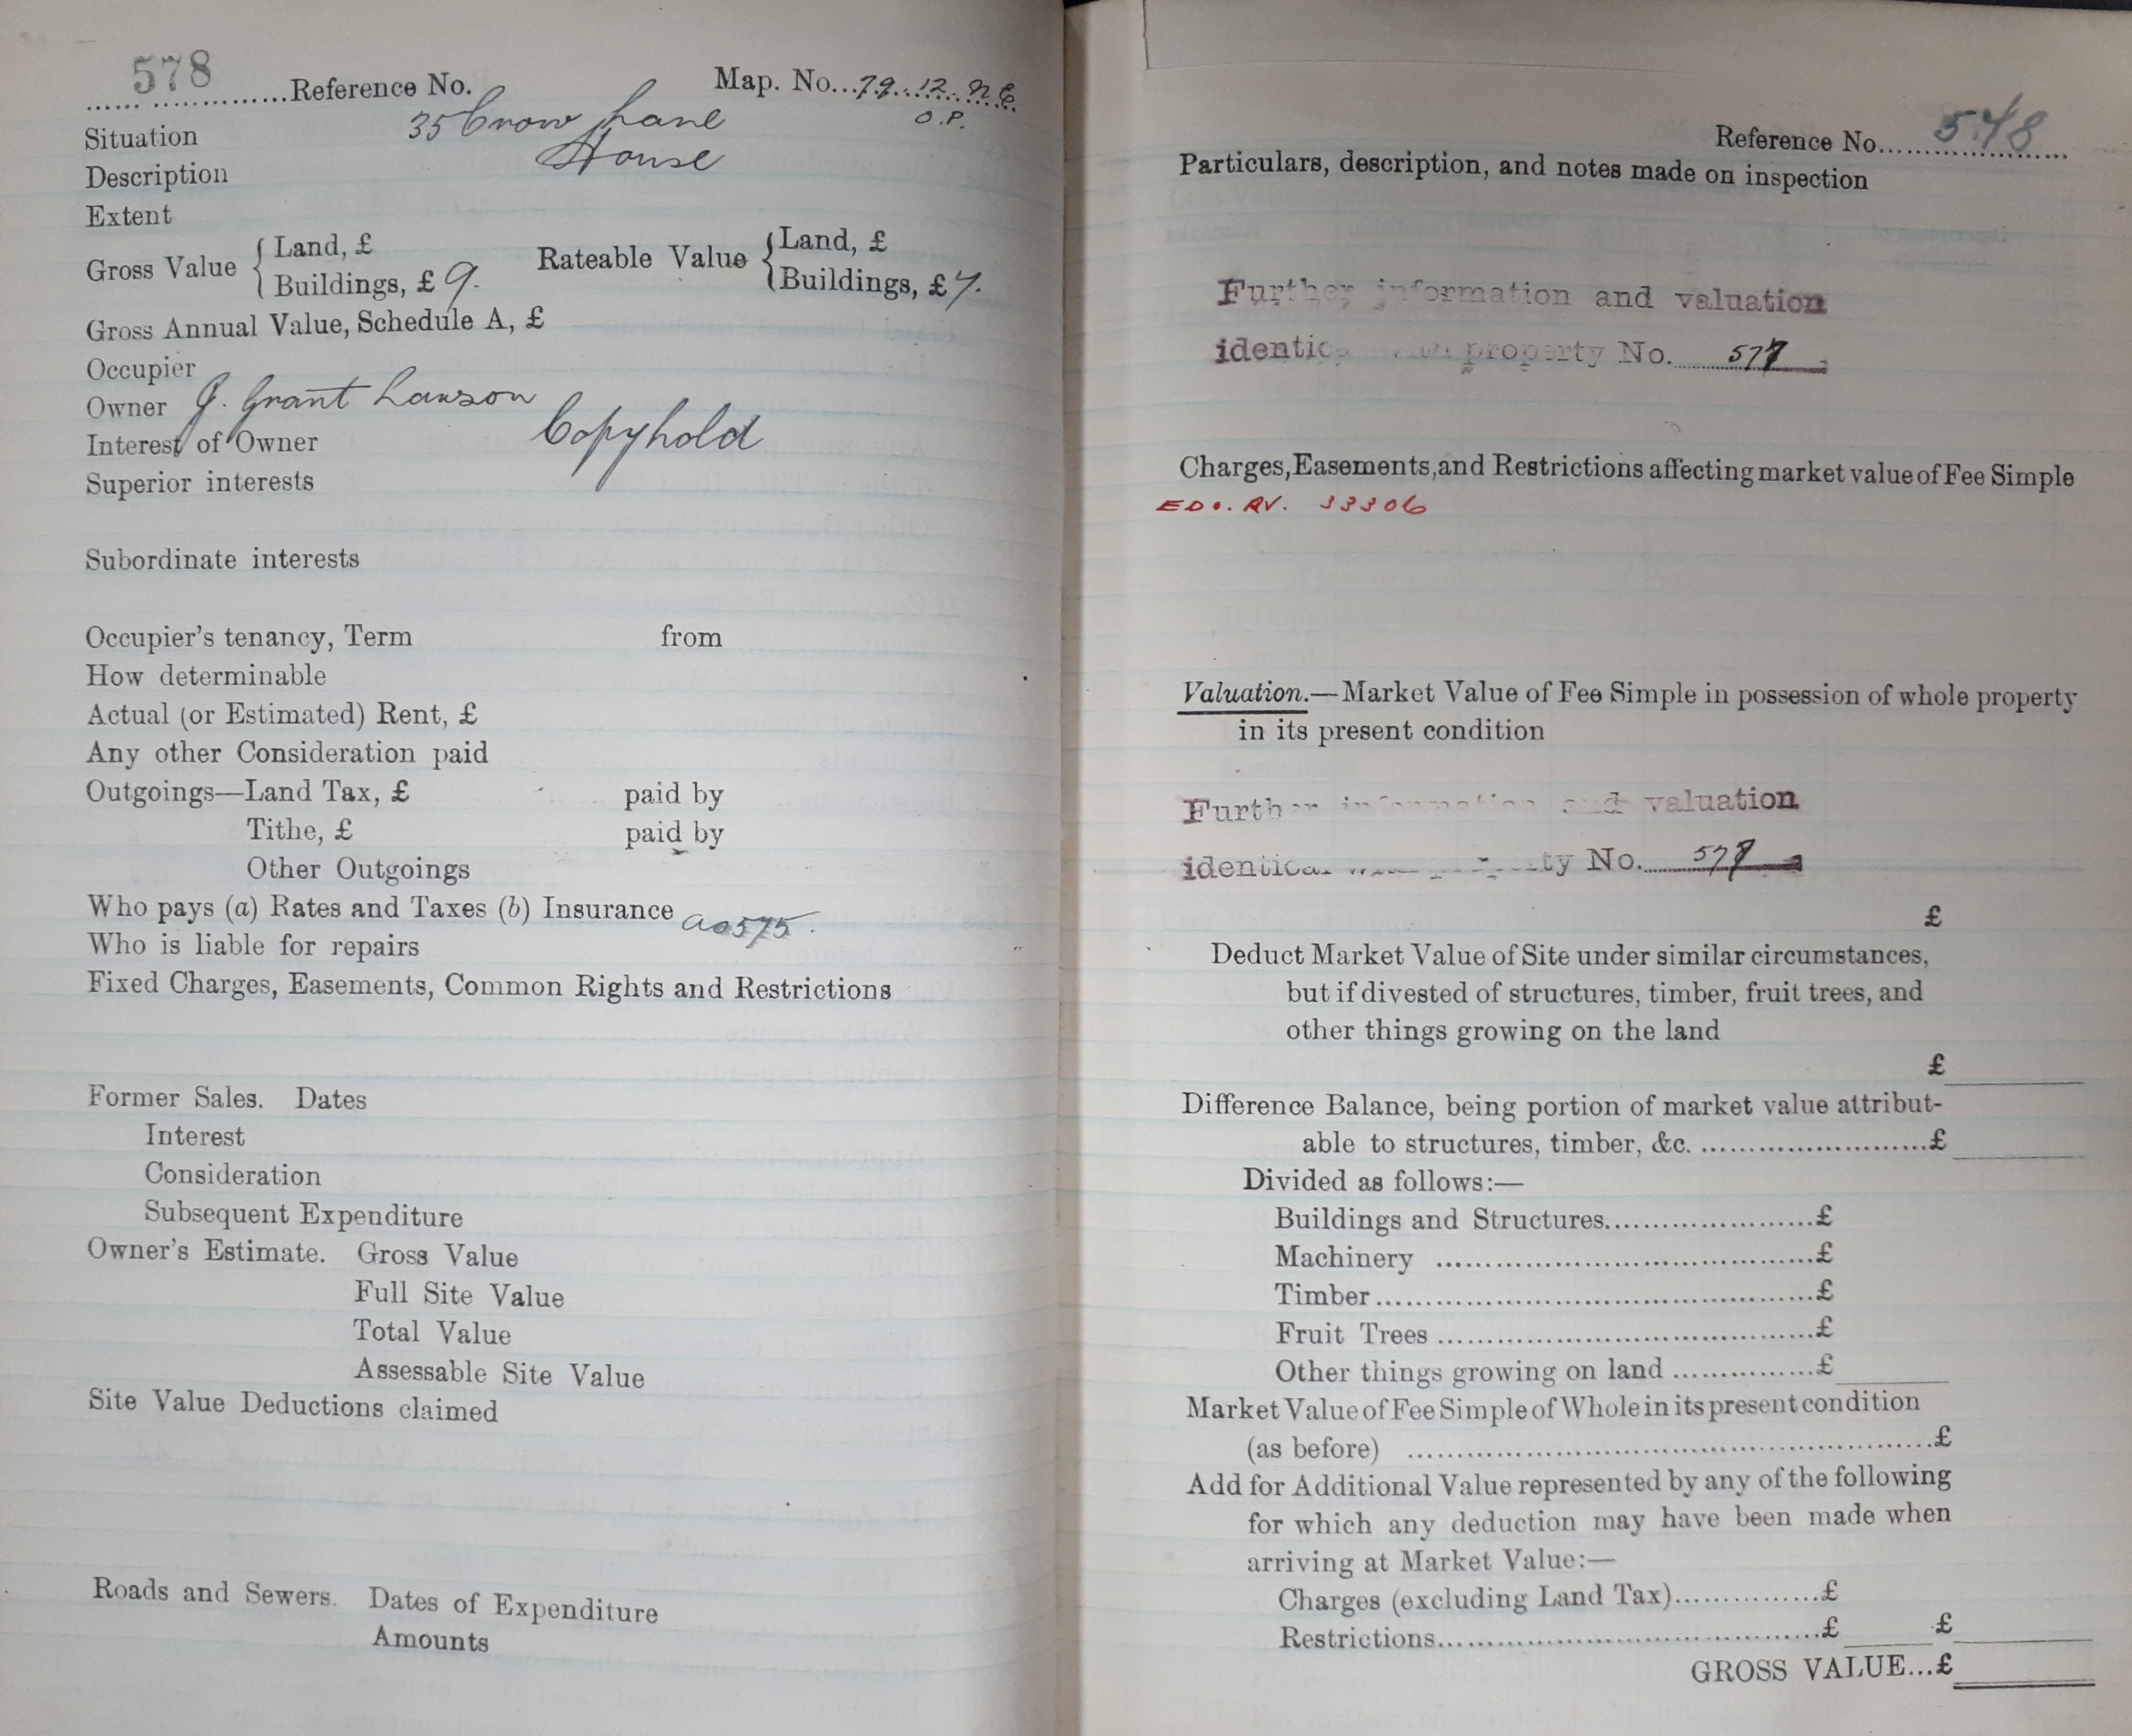 578 Reference No. Map. No. 79. 12. N E.
O.P.
Situation 35 Crow Lane
Description House
Extent
Gross Value { Land, £ Rateable Value { Land, £
Buildings, £ 9. Buildings, £ 7.
Gross Annual Value, Schedule A, £
Occupier
Owner J. Grant Lawson
Interest of Owner Copyhold
Superior interests
Subordinate interests
Occupier's tenancy, Term from
How determinable
Actual (or Estimated) Rent, £
Any other Consideration paid
Outgoings—Land Tax, £ paid by
Tithe, £ paid by
Other Outgoings
Who pays (a) Rates and Taxes (b) Insurance as 575.
Who is liable for repairs
Fixed Charges, Easements, Common Rights and Restrictions
Former Sales. Dates
Interest
Consideration
Subsequent Expenditure
Owner's Estimate. Gross Value
Full Site Value
Total Value
Assessable Site Value
Site Value Deductions claimed
Roads and Sewers. Dates of Expenditure
Amounts
Reference No. 578
Particulars, description, and notes made on inspection
Further information and valuation
identical with property No. 577
Charges, Easements, and Restrictions affecting market value of Fee Simple
EDO. RV. 33306
Valuation.—Market Value of Fee Simple in possession of whole property
in its present condition
Further information and valuation
identical with property No. 577
£
Deduct Market Value of Site under similar circumstances,
but if divested of structures, timber, fruit trees, and
other things growing on the land
£
Difference Balance, being portion of market value attribut-
able to structures, timber, &c. £
Divided as follows:—
Buildings and Structures £
Machinery £
Timber £
Fruit Trees £
Other things growing on land £
Market Value of Fee Simple of Whole in its present condition
(as before) £
Add for Additional Value represented by any of the following
for which any deduction may have been made when
arriving at Market Value:—
Charges (excluding Land Tax) £
Restrictions £ £
GROSS VALUE... £